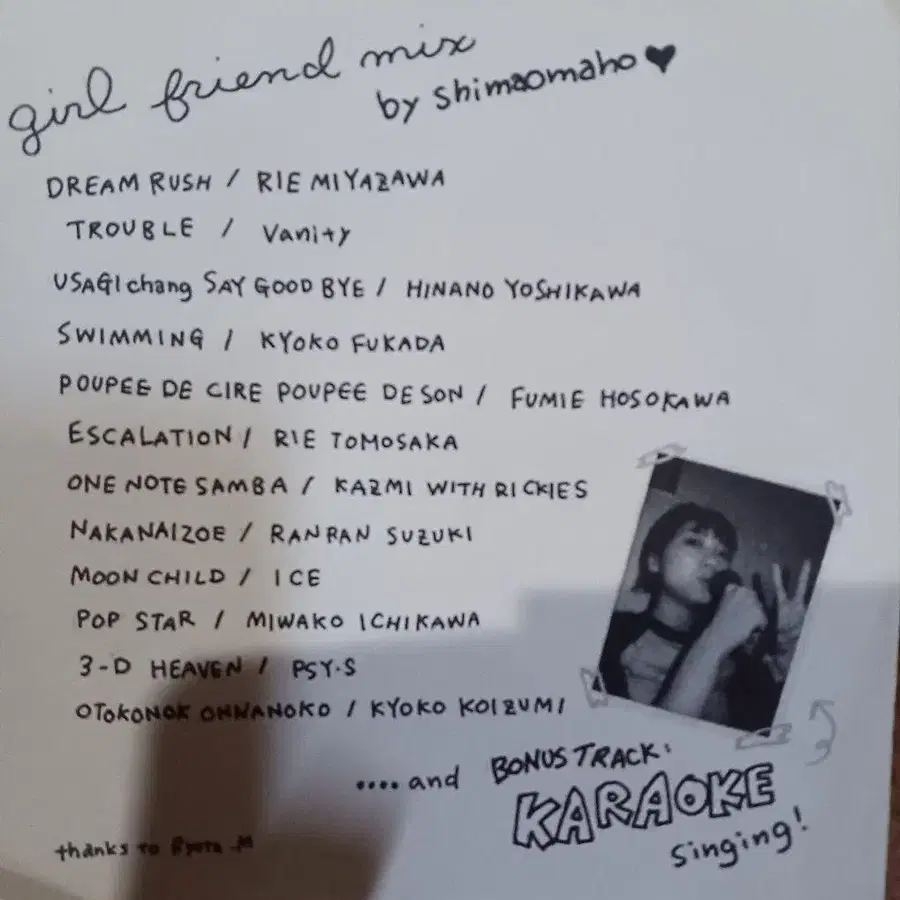 girl friend mix
by shimaomaho ♥
DREAM RUSH / RIE MIYAZAWA
TROUBLE / Vanity
USAGI chang SAY GOOD BYE / HINANO YOSHIKAWA
SWIMMING / KYOKO FUKADA
POUPEE DE CIRE POUPEE DE SON / FUMIE HOSOKAWA
ESCALATION / RIE TOMOSAKA
ONE NOTE SAMBA / KAZMI WITH RICKIES
NAKANAIZOE / RANRAN SUZUKI
MOON CHILD / ICE
POP STAR / MIWAKO ICHIKAWA
3-D HEAVEN / PSY·S
OTOKONOK ONNANOKO / KYOKO KOIZUMI
....and BONUS TRACK:
KARAOKE
singing!
thanks to Ryota .M